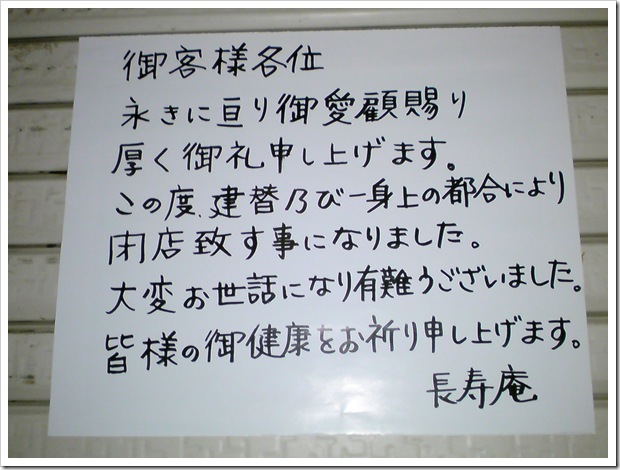 御客様各位
永きに亘り御愛顧賜り
厚く御礼申し上げます。
この度、建替乃び一身上の都合により
閉店致す事になりました。
大変お世話になり有難うございました。
皆様の御健康をお祈り申し上げます。
長寿庵